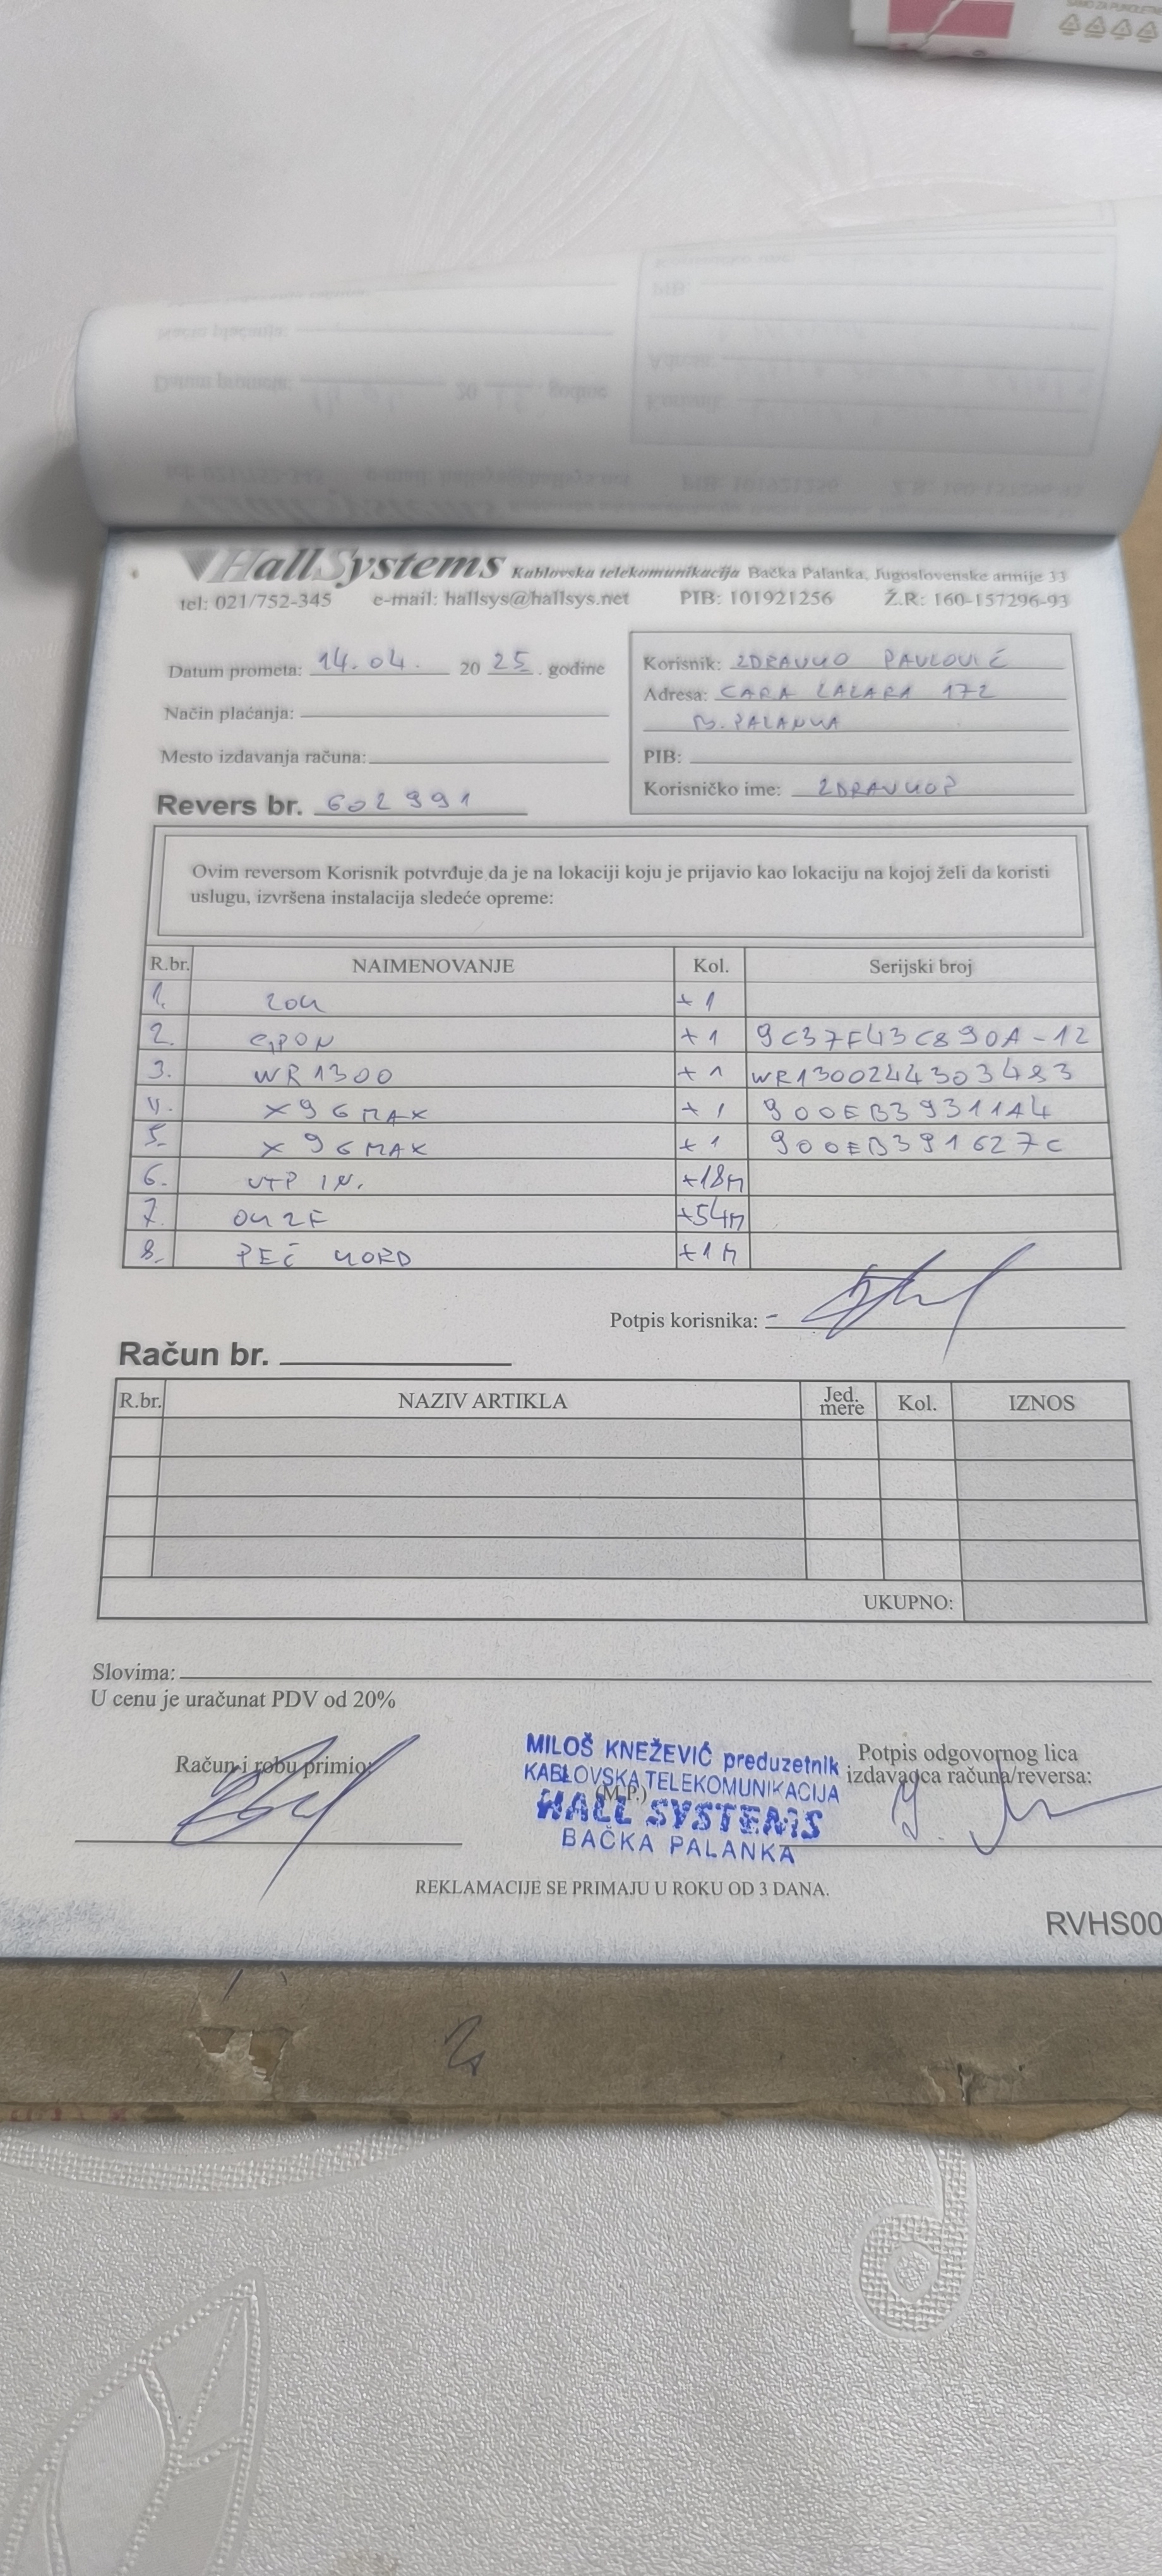 SAMO ZA PUNOLETNE
HallSystems Kablovska telekomunikacija Bačka Palanka, Jugoslovenske armije 33
tel: 021/752-345 e-mail: hallsys@hallsys.net PIB: 101921256 Ž.R: 160-157296-93
Datum prometa: 14.04. 20 25. godine
Način plaćanja:
Mesto izdavanja računa:
Revers br. 602991
Korisnik: ZDRAVKO PAVLOVIĆ
Adresa: CARA LAZARA 172
B. PALANKA
PIB:
Korisničko ime: ZDRAVKOP
Ovim reversom Korisnik potvrđuje da je na lokaciji koju je prijavio kao lokaciju na kojoj želi da koristi
uslugu, izvršena instalacija sledeće opreme:
R.br. NAIMENOVANJE Kol. Serijski broj
1. +1
2. GPON +1 9C37F43C890A-12
3. WR1300 +1 WR1300244303483
4. X96MAX +1 900EB39311A4
5. X96MAX +1 900EB391627C
6. UTP IN. +18M
7. OK 2F +54M
8. PEČ KORD +1M
Potpis korisnika:
Račun br.
R.br. NAZIV ARTIKLA Jed. mere Kol. IZNOS
UKUPNO:
Slovima:
U cenu je uračunat PDV od 20%
Račun i robu primio:
MILOŠ KNEŽEVIĆ preduzetnik
KABLOVSKA TELEKOMUNIKACIJA
(M.P.)
HALL SYSTEMS
BAČKA PALANKA
Potpis odgovornog lica
izdavaoca računa/reversa:
REKLAMACIJE SE PRIMAJU U ROKU OD 3 DANA.
RVHS00